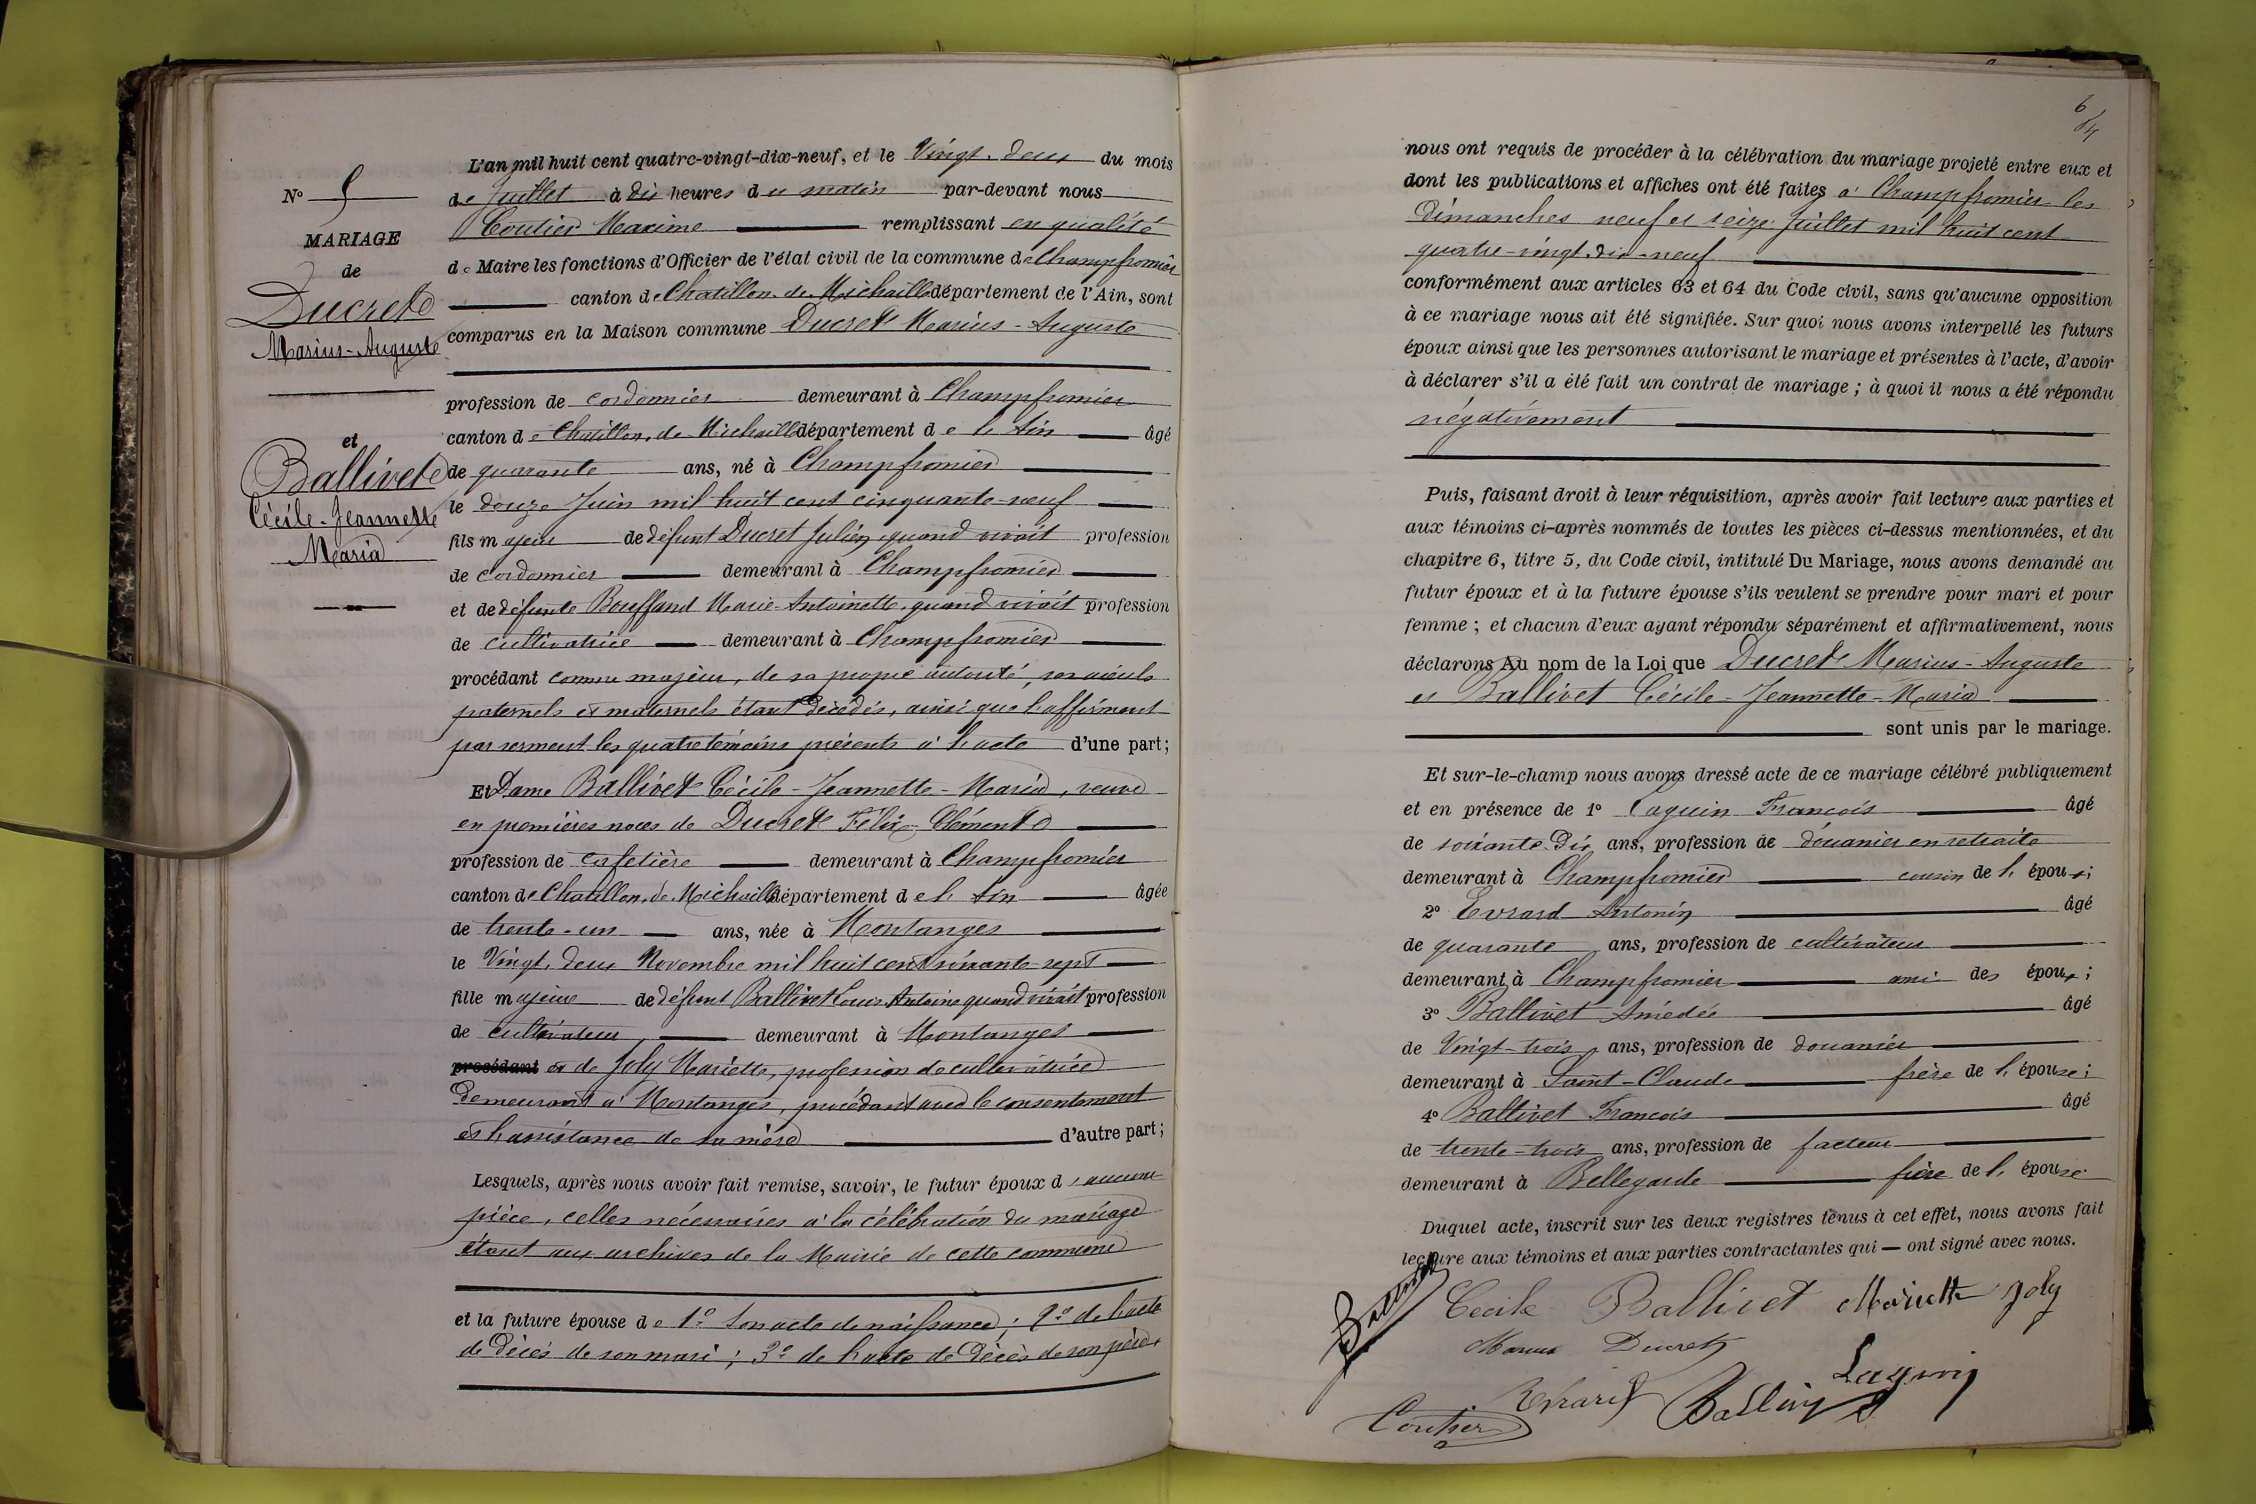 N° 5
MARIAGE
de
Ducret
Marius-Auguste
et
Ballivet
Cécile-Jeannette
Maria
L'an mil huit cent quatre-vingt-dix-neuf, et le Vingt-deux du mois
de Juillet à dix heures du matin par-devant nous
Coutier Maxime remplissant en qualité
de Maire les fonctions d'Officier de l'état civil de la commune de Champfromier
canton de Chatillon-de-Michaille département de l'Ain, sont
comparus en la Maison commune Ducret Marius-Auguste
profession de cordonnier demeurant à Champfromier
canton de Chatillon-de-Michaille département de l'Ain âgé
de quarante ans, né à Champfromier
le douze Juin mil huit cent cinquante-neuf
fils majeur de défunt Ducret Julien, quand vivait profession
de cordonnier demeurant à Champfromier
et de défunte Bouffand Marie-Antoinette, quand vivait profession
de cultivatrice demeurant à Champfromier
procédant comme majeur, de sa propre autorité, ses aïeuls
paternels et maternels étant décédés, ainsi que l'affirment
par serment les quatre témoins présents à l'acte d'une part;
Et Dame Ballivet Cécile-Jeannette-Maria, veuve
en premières noces de Ducret Félix-Clément
profession de cafetière demeurant à Champfromier
canton de Chatillon-de-Michaille département de l'Ain âgée
de trente-un ans, née à Montanges
le Vingt-deux Novembre mil huit cent soixante-sept
fille majeure de défunt Ballivet Louis-Antoine quand vivait profession
de cultivateur demeurant à Montanges
procédant et de Joly Mariette, profession de cultivatrice
demeurant à Montanges, procédant avec le consentement
et l'assistance de sa mère d'autre part;
Lesquels, après nous avoir fait remise, savoir, le futur époux d'aucune
pièce, celles nécessaires à la célébration du mariage
étant aux archives de la Mairie de cette commune
et la future épouse de 1° son acte de naissance; 2° de l'acte
de décès de son mari; 3° de l'acte de décès de son père
6
nous ont requis de procéder à la célébration du mariage projeté entre eux et
dont les publications et affiches ont été faites à Champfromier les
dimanches neuf et seize Juillet mil huit cent
quatre-vingt-dix-neuf
conformément aux articles 63 et 64 du Code civil, sans qu'aucune opposition
à ce mariage nous ait été signifiée. Sur quoi nous avons interpellé les futurs
époux ainsi que les personnes autorisant le mariage et présentes à l'acte, d'avoir
à déclarer s'il a été fait un contrat de mariage; à quoi il nous a été répondu
négativement
Puis, faisant droit à leur réquisition, après avoir fait lecture aux parties et
aux témoins ci-après nommés de toutes les pièces ci-dessus mentionnées, et du
chapitre 6, titre 5, du Code civil, intitulé Du Mariage, nous avons demandé au
futur époux et à la future épouse s'ils veulent se prendre pour mari et pour
femme; et chacun d'eux ayant répondu séparément et affirmativement, nous
déclarons Au nom de la Loi que Ducret Marius-Auguste
et Ballivet Cécile-Jeannette-Maria
sont unis par le mariage.
Et sur-le-champ nous avons dressé acte de ce mariage célébré publiquement
et en présence de 1° Laguin François âgé
de soixante-dix ans, profession de douanier en retraite
demeurant à Champfromier cousin de l'époux;
2° Evrard Antonin âgé
de quarante ans, profession de cultivateur
demeurant à Champfromier ami des époux;
3° Ballivet Amédée âgé
de Vingt-trois ans, profession de douanier
demeurant à Saint-Claude frère de l'épouse;
4° Ballivet François âgé
de trente-trois ans, profession de facteur
demeurant à Bellegarde frère de l'épouse
Duquel acte, inscrit sur les deux registres tenus à cet effet, nous avons fait
lecture aux témoins et aux parties contractantes qui — ont signé avec nous.
Ballivet Cecile Ballivet Mariette Joly
Marius Ducret
Laguin
Evrard Ballivet
Coutier